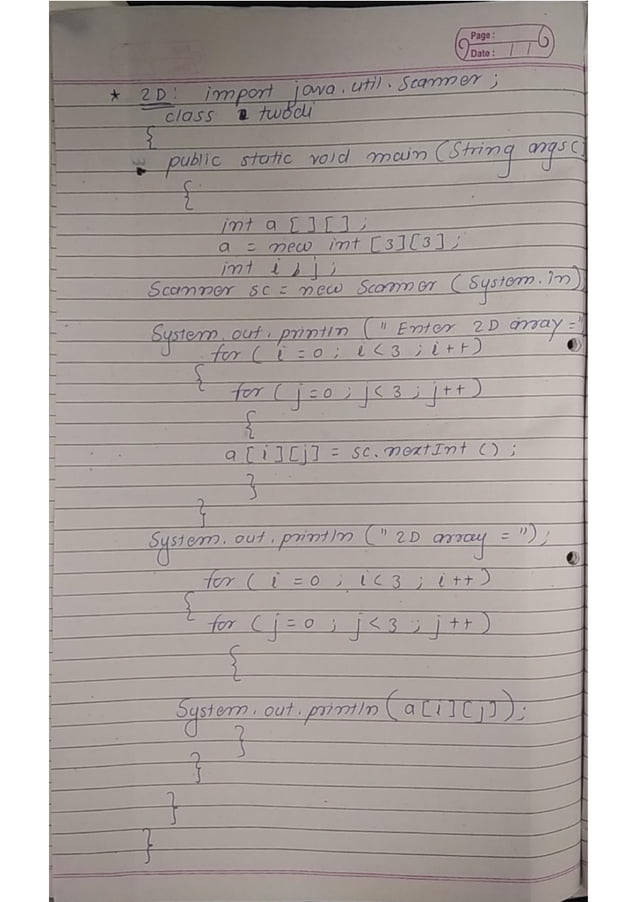 Page:
Date: / /
* 2D: import java.util.Scanner;
class twodi
{
public static void main (String args[]
{
int a [][];
a = new int [3][3];
int i, j;
Scanner sc = new Scanner (System.in)
System.out.println (" Enter 2D array ="
for ( i = 0 ; i < 3 ; i++)
{
for ( j = 0 ; j < 3 ; j++)
{
a [i][j] = sc.nextInt ();
}
}
System.out.println (" 2D array = ");
for ( i = 0 ; i < 3 ; i++)
{
for ( j = 0 ; j < 3 ; j++)
{
System.out.println (a[i][j]);
}
}
}
}